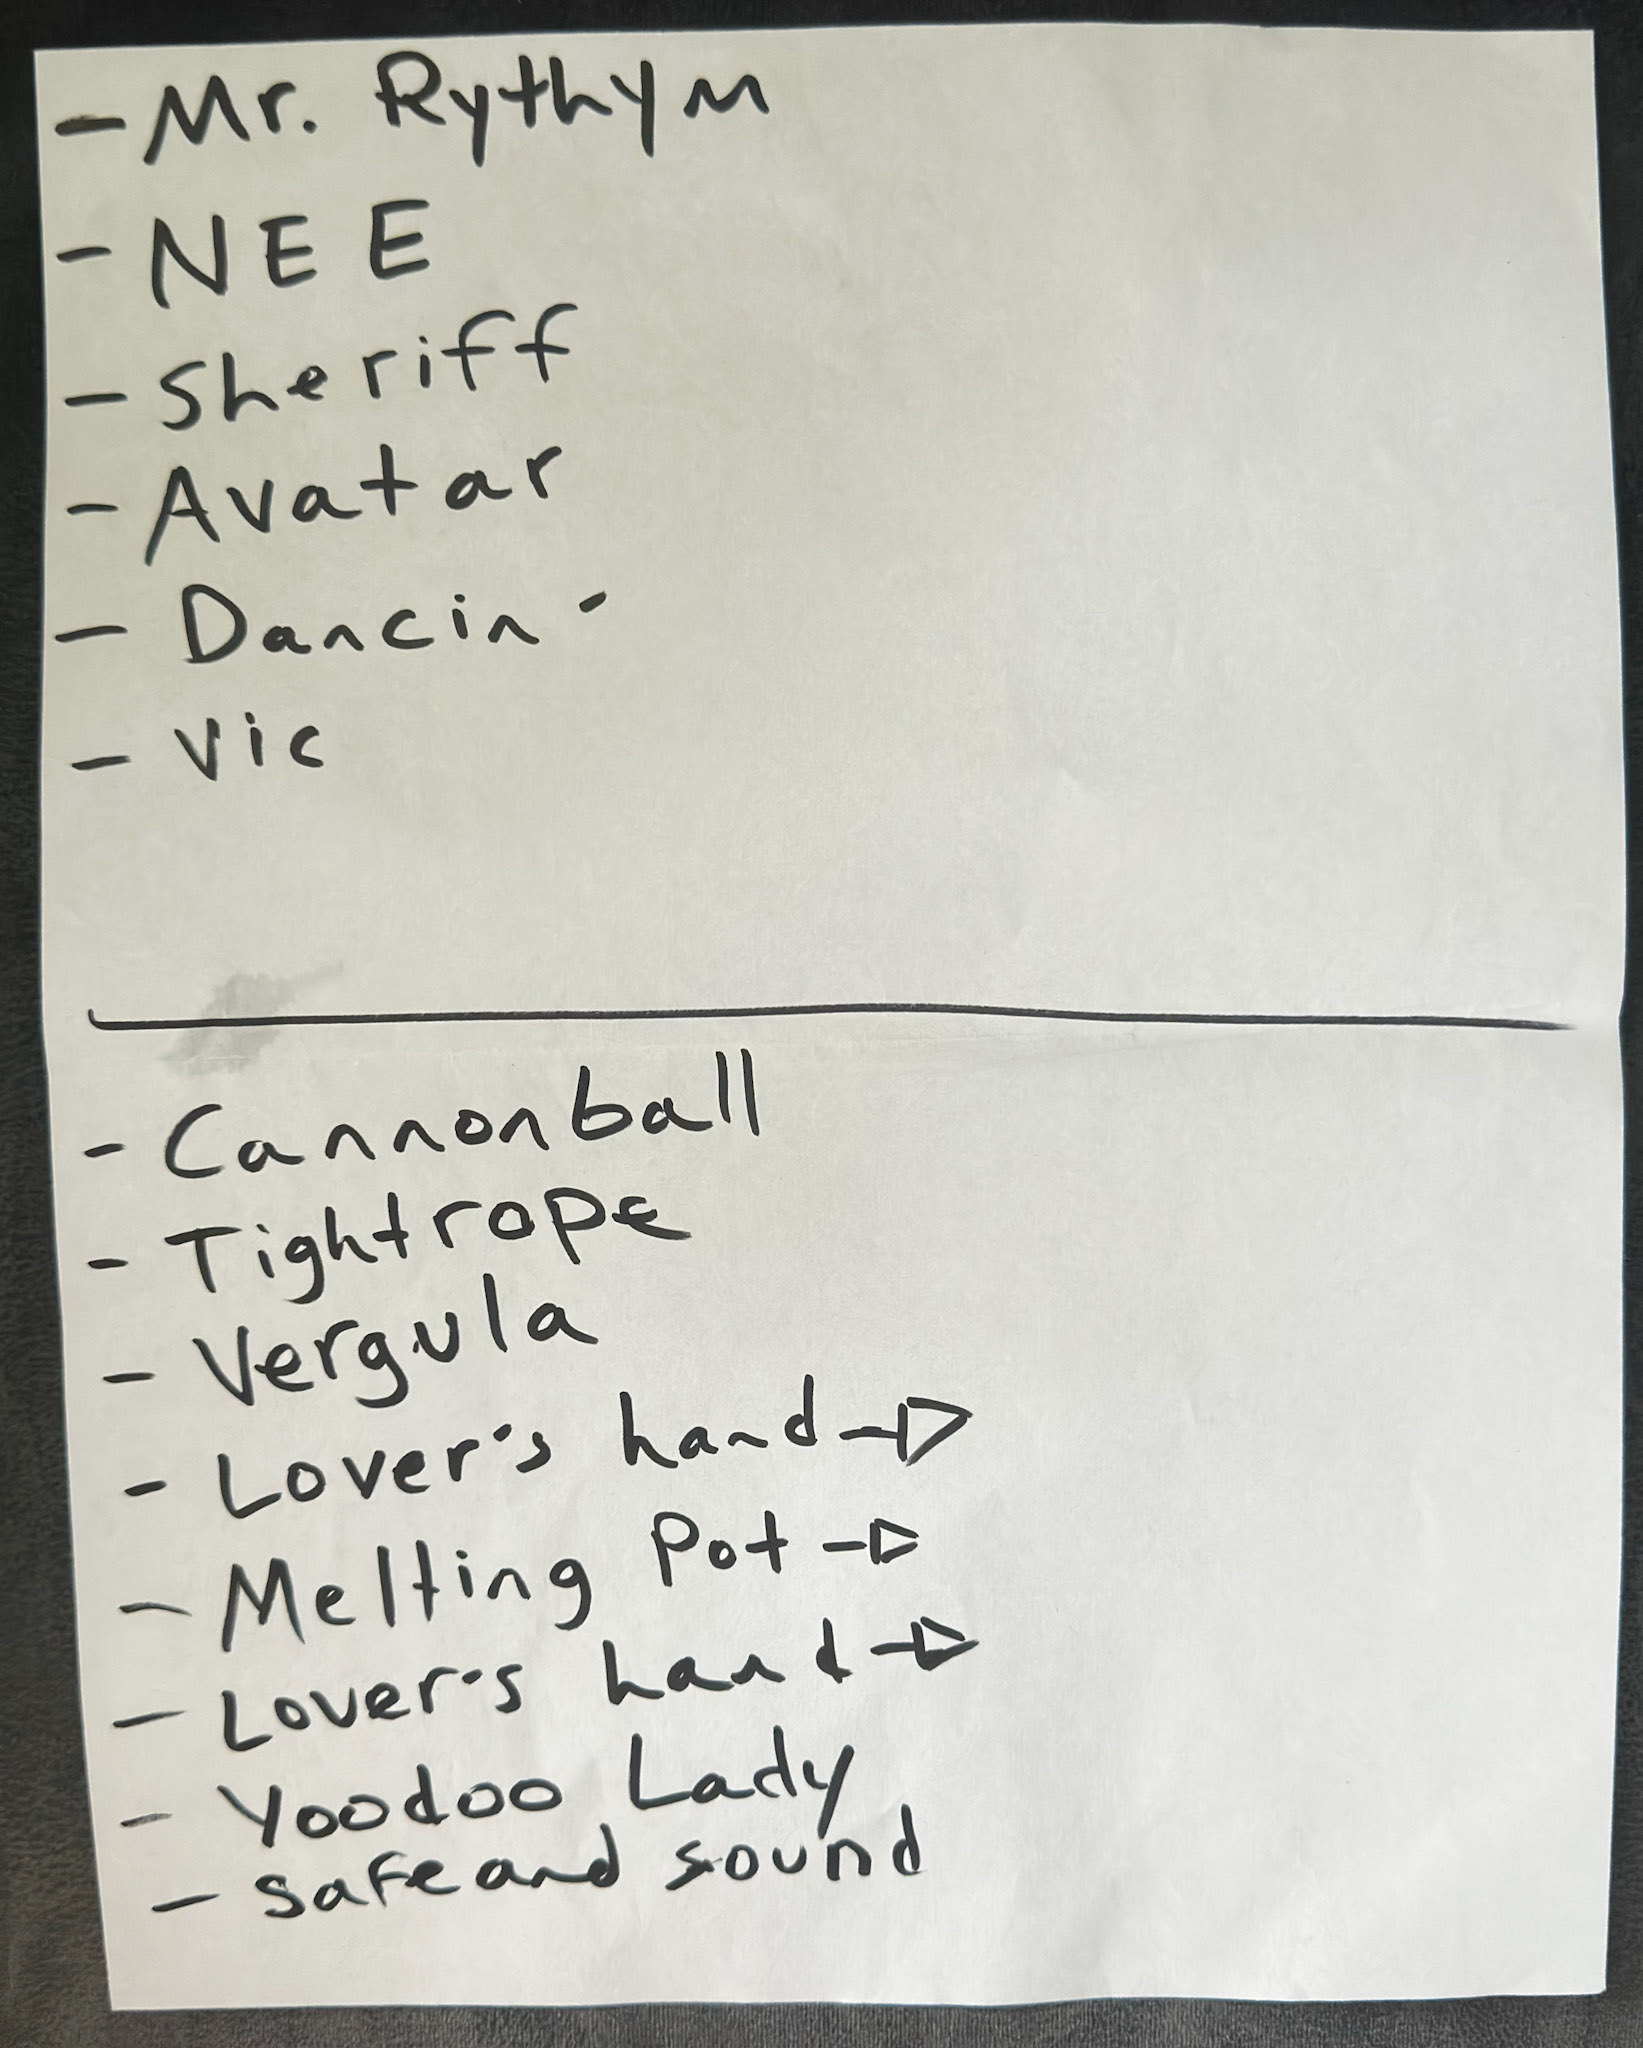 - Mr. Rythym
- NEE
- Sheriff
- Avatar
- Dancin'
- Vic
- Cannonball
- Tightrope
- Vergula
- Lover's hand →
- Melting Pot →
- Lover's hand →
- Voodoo Lady
- Safe and sound